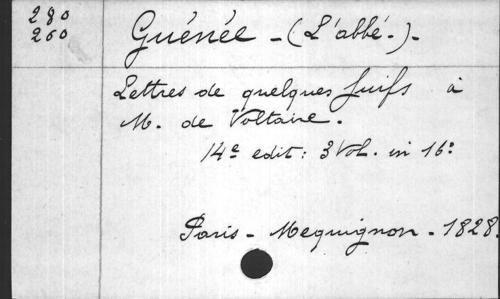 280
260
Guénée - (L'abbé.) -
Lettres de quelques Juifs à
M. de Voltaire.
14e edit: 3 vol. in 16:
Paris - Mequignon - 1828.